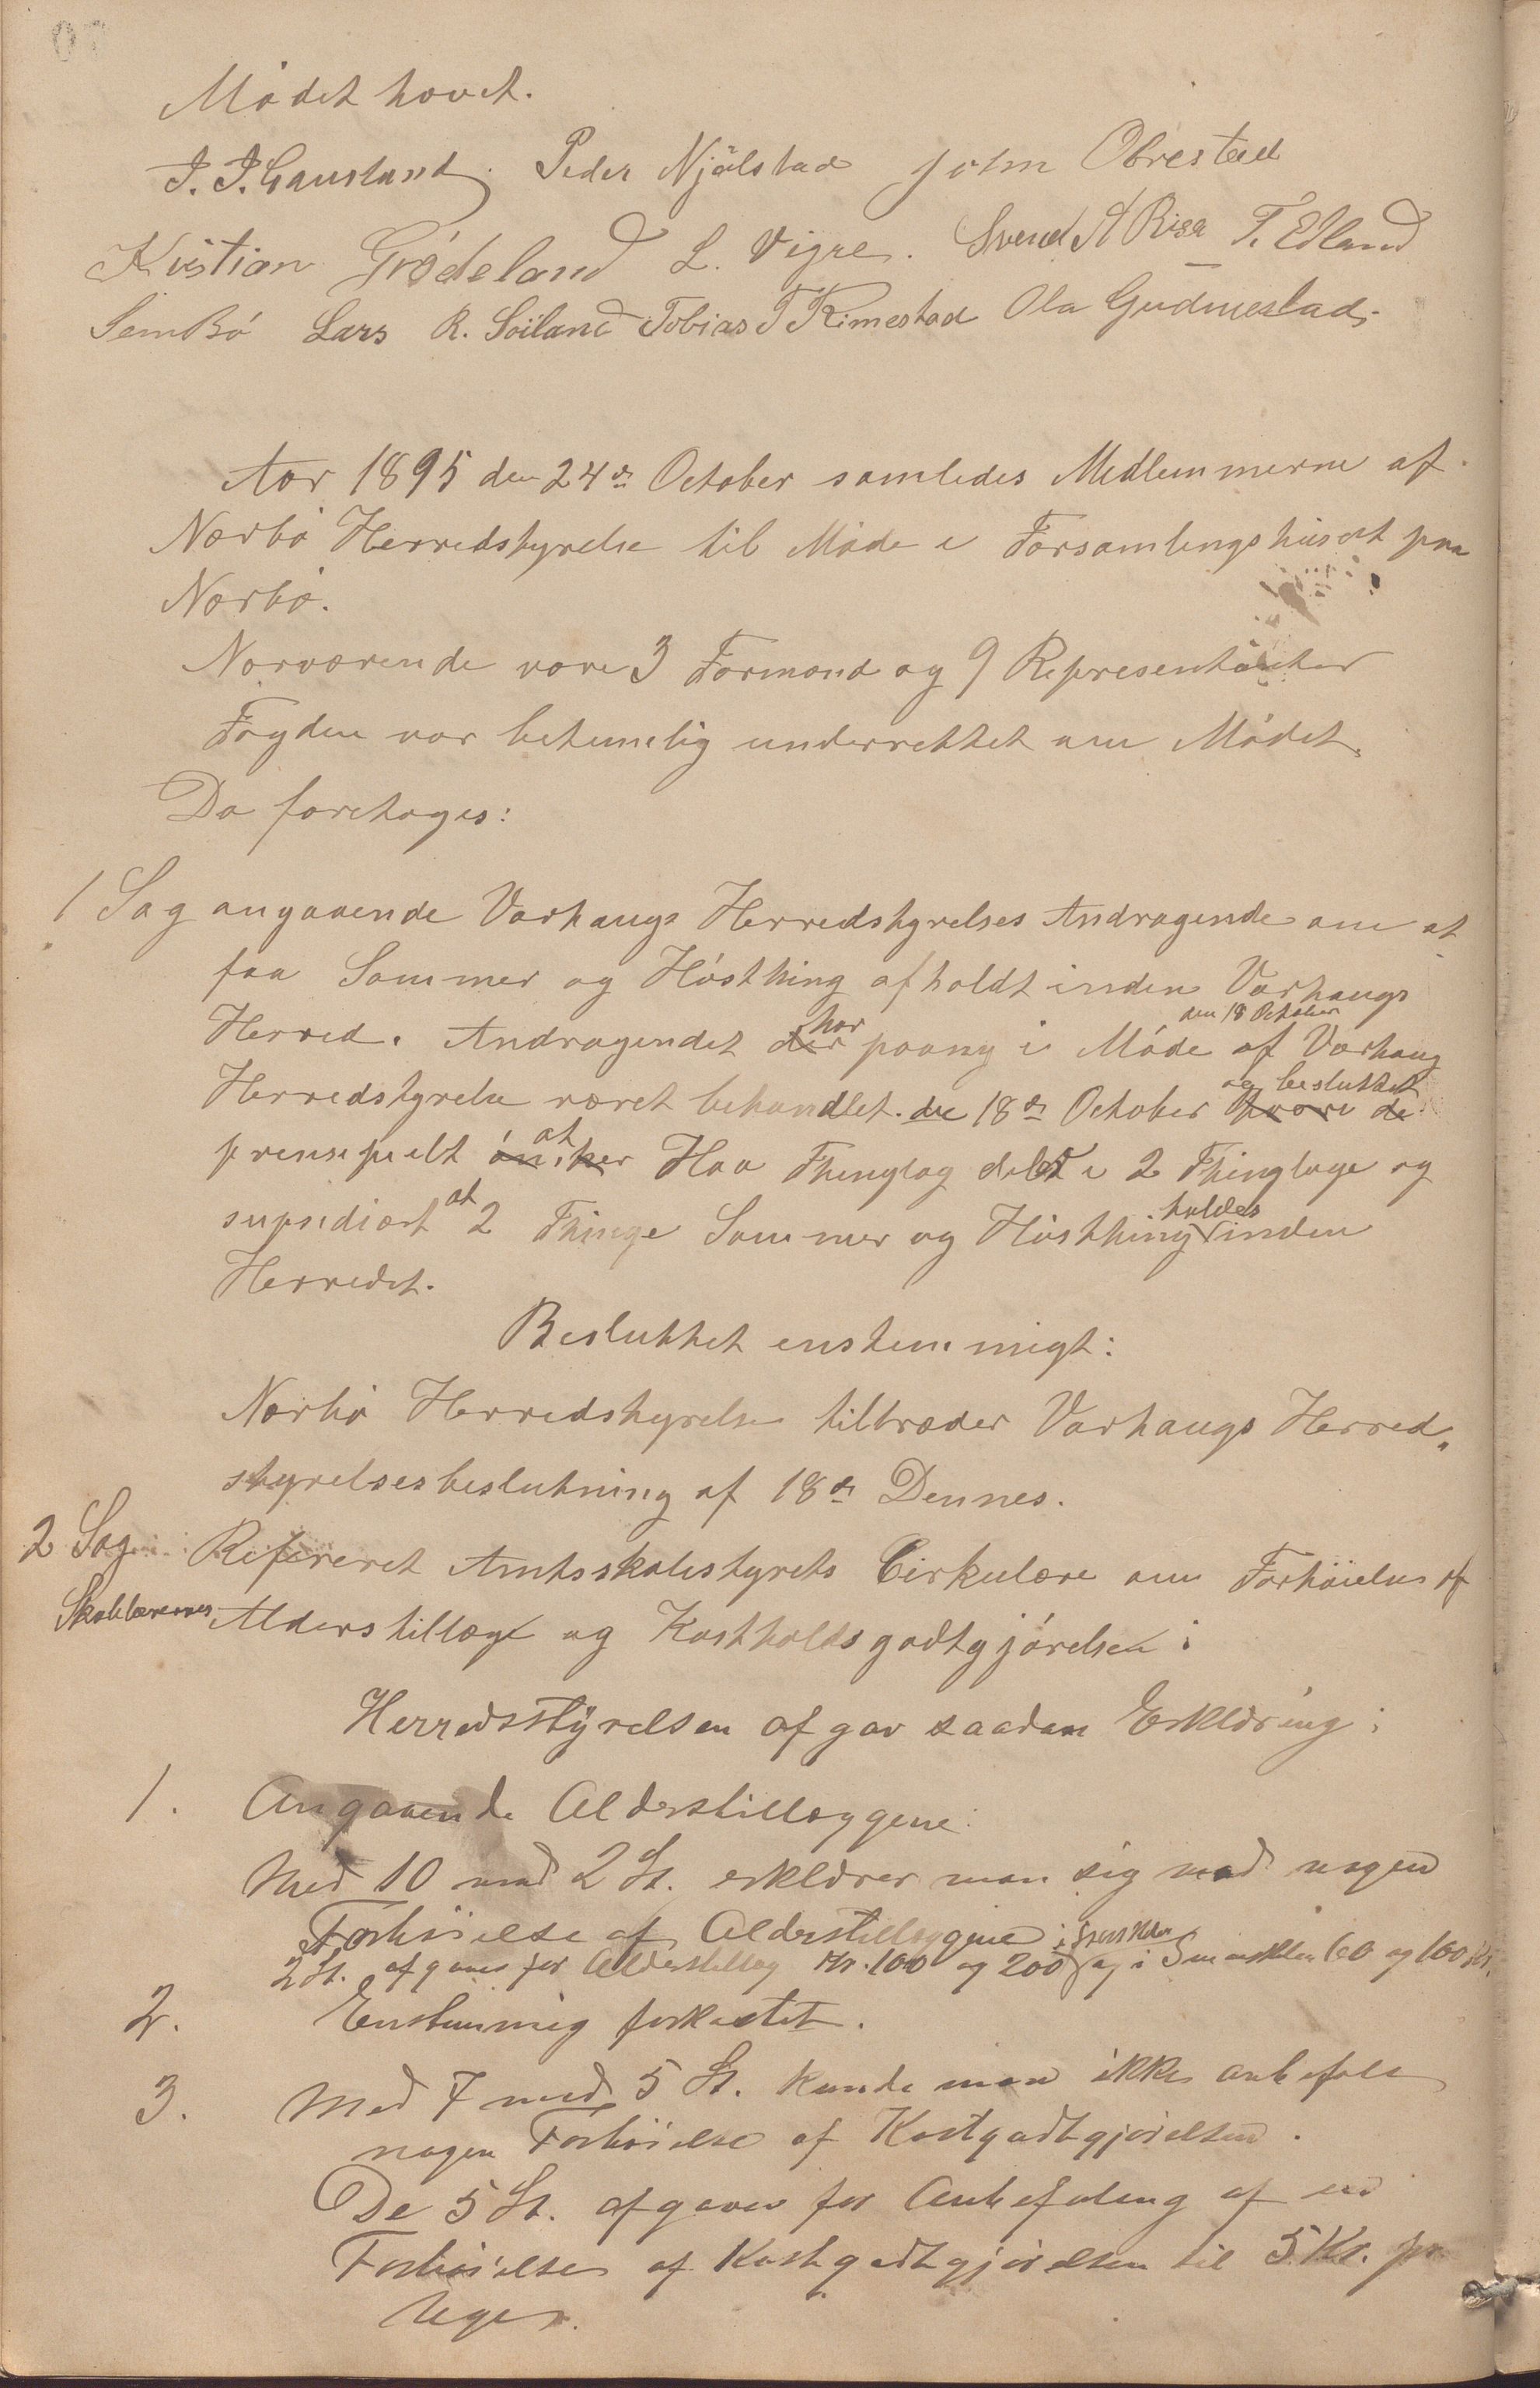 Mødet hævet.
J. J. Gausland. Peder Njålstad John Obrestad
Kristian Grødeland L. Vigre. Svend A Risa T. Edland
Sem Bø Lars R. Søiland Tobias T Rimestad Ola Gudmestad.
Aar 1895 den 24de October samledes Medlemmerne af
Nærbø Herredstyrelse til Møde i Forsamlingshuset paa
Nærbø.
Nærværende vare 3 Formænd og 9 Repræsentanter
Fogden var betimelig underrettet om Mødet.
Da foretoges:
1 Sag angaaende Varhaugs Herredstyrelses Andragende om at
faa Sommer og Høstthing afholdt inden Varhaugs
Herred. Andragendet der har paany i Møde den 18 October af Varhaug
Herredstyrelse været behandlet. den 18de October hvori de og besluttet
prensipielt ønsker at Haa Thinglag delet i 2 Thinglage og
supsidiært at 2 Thinge Sommer og Høstthing holdes inden
Herredet.
Besluttet enstemmigt:
Nærbø Herredstyrelse tiltræder Varhaugs Herred„
styrelsesbeslutning af 18de Dennes.
2 Sag Refereret Amtsskolestyrets Cirkulære om Forhøielse af
Skolelærernes Alderstillæg og Kostholdsgodtgjørelsen:
Herredsstyrelsen afgav saadan Erklæring:
1. Angaaende Alderstillæggene:
Med 10 mod 2 St. erklærer man sig mod nogen
Forhøielse af Alderstillæggene
2 St. afgaves for Alderstillæg Kr. 100 og 200 i Storskolen og i Smaaskolen 60 og 100 Kr.
2. Enstemmig forkastet.
3. Med 7 mod 5 St. kunde man ikke anbefale
nogen Forhøielse af Kostgodtgjørelsen.
De 5 St. afgaves for Anbefaling af en
Forhøielse af Kostgodtgjørelsen til 5 Kr. pr.
Uge.